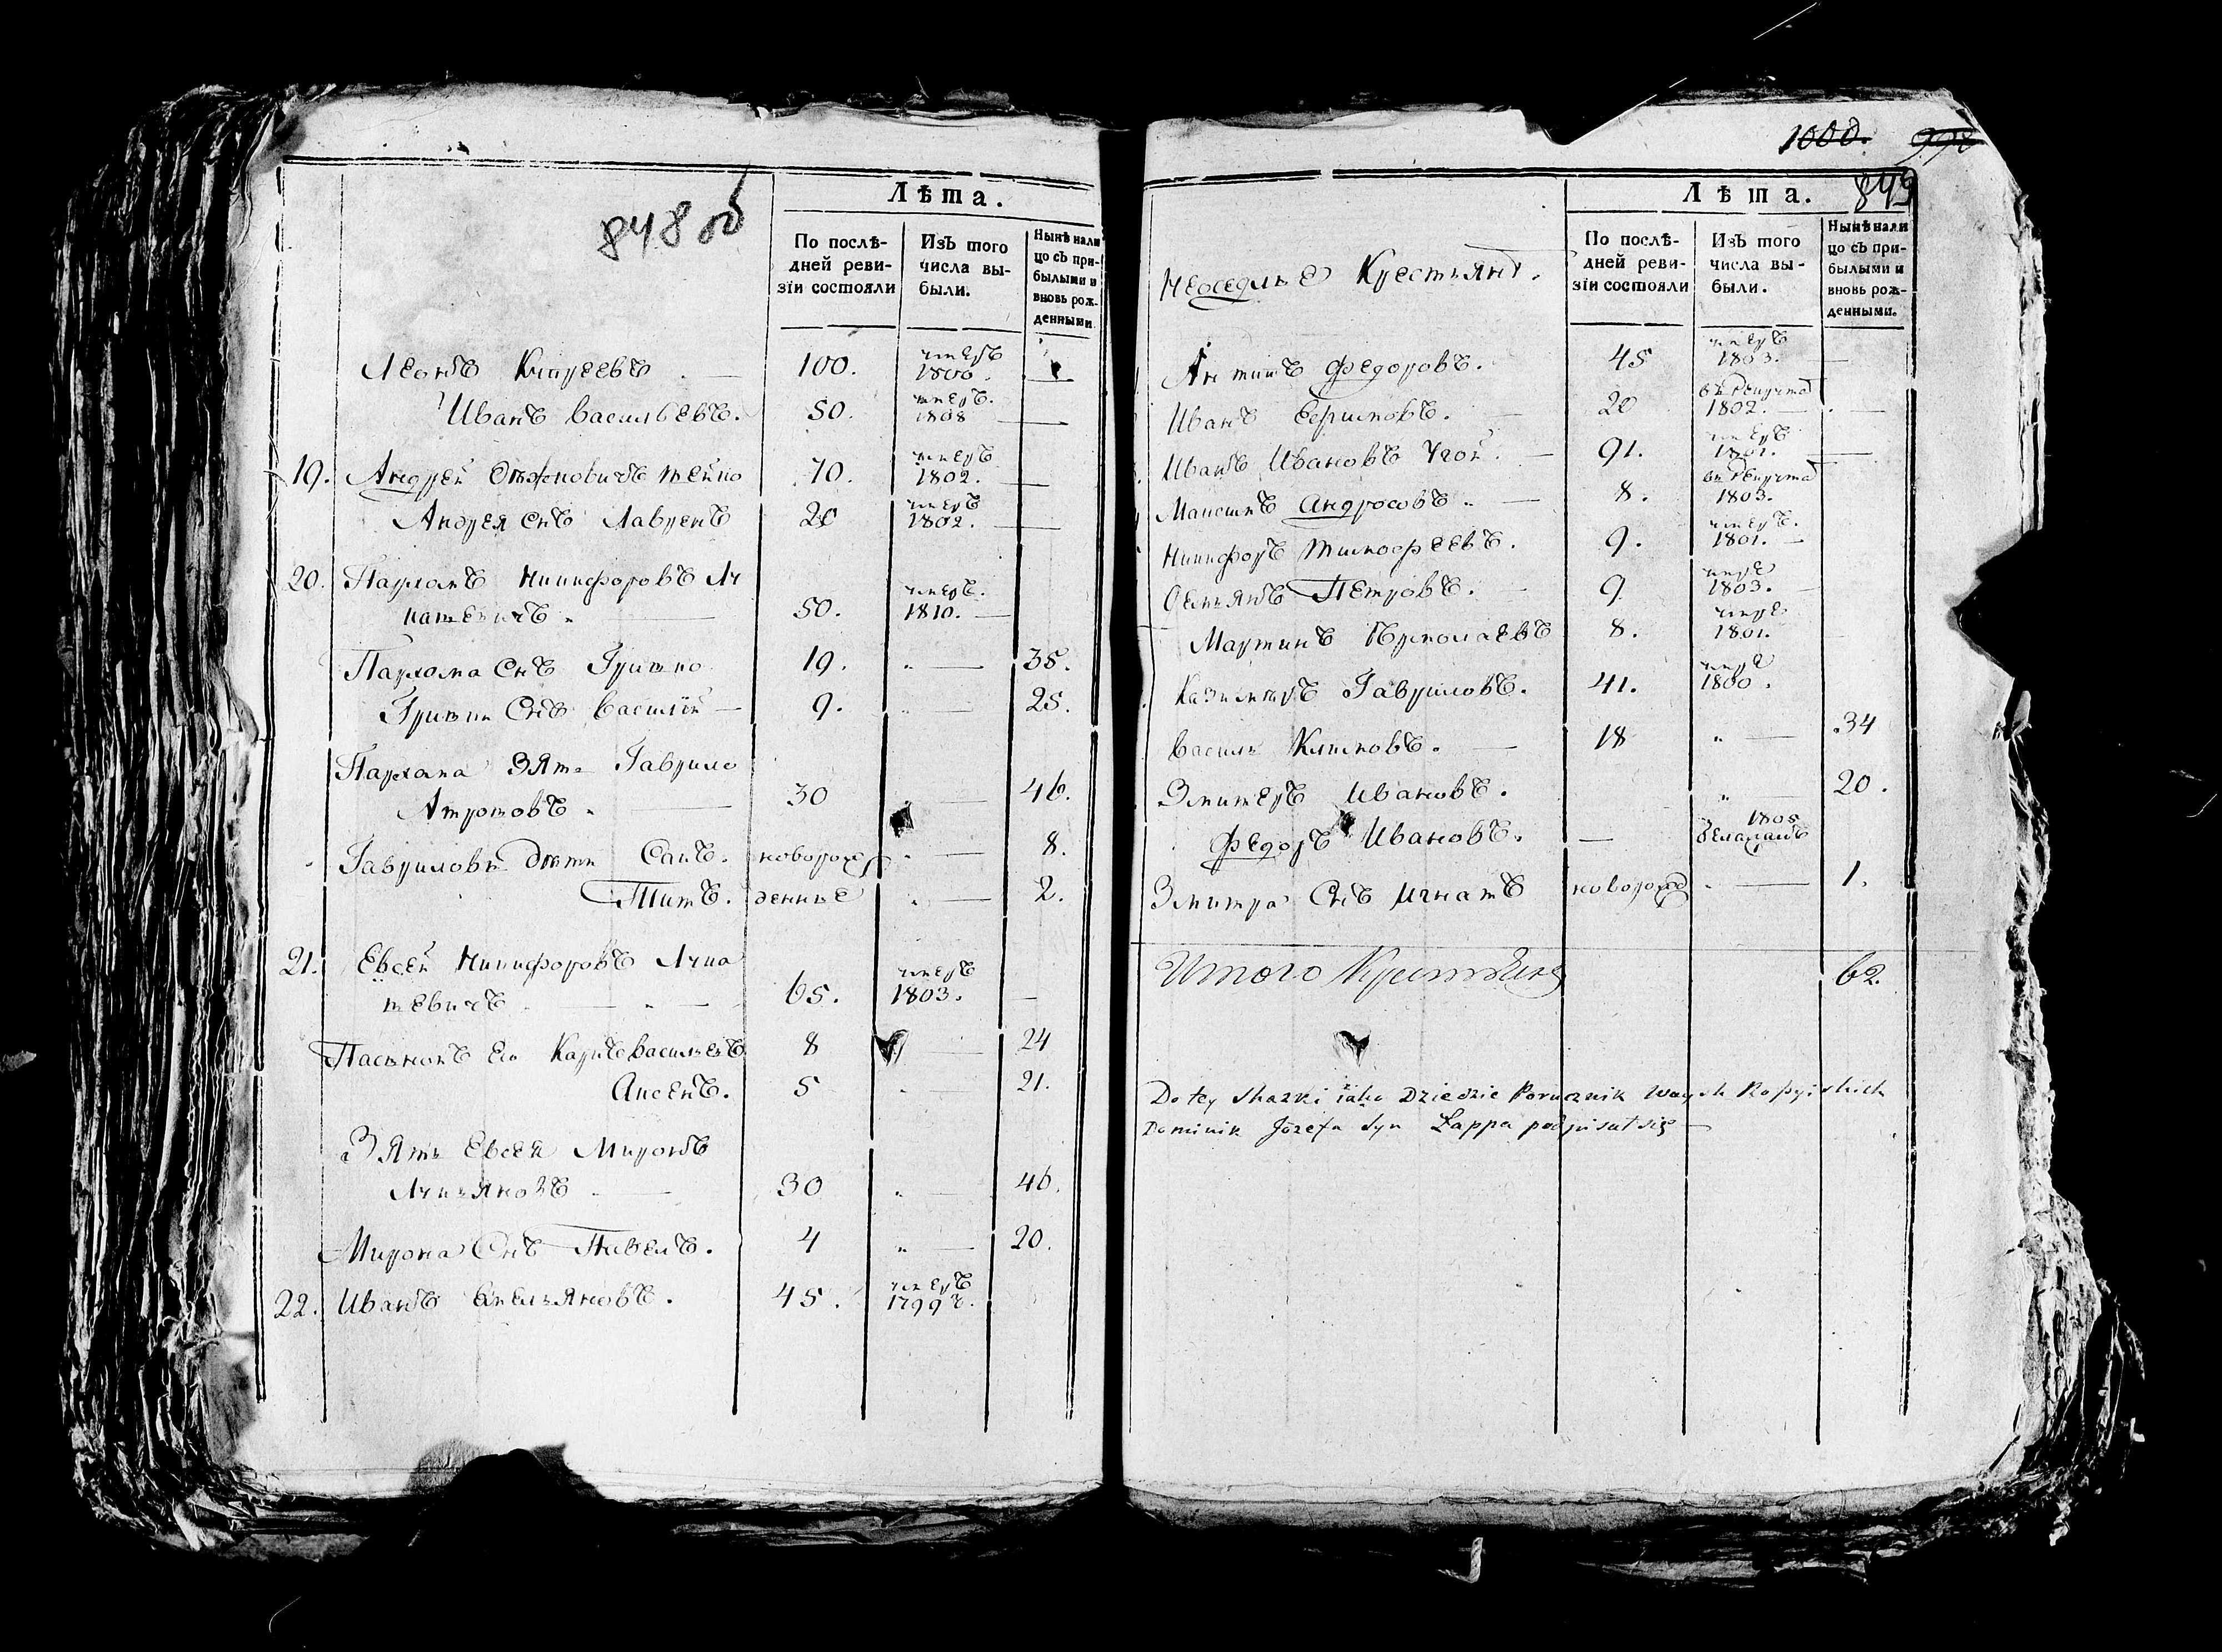 848 об
Лѣта.
По послѣ-
дней реви-
зіи состояли
Изъ того
числа вы-
были.
Нынѣ нали
цо съ при-
былыми и
вновь рож-
денными
Леонъ 100. умеръ 1800.
Иванъ Васильевъ. 50. умеръ. 1808
19. Андрей 70. умеръ 1802.
Андрея Снъ Лавренъ 20 умеръ 1802.
20. Пархомъ Никифоровъ Лу
50. умеръ. 1810.
Пархома Снъ Гришко 19. " 35.
Гришки Снъ Василій 9. " 25.
Пархома Зять Гаврило
30 " 46.
Гавриловы Дѣти Сакъ. новорож " 8.
Титъ. денные " 2.
21. Евсей Никифоровъ
65. умеръ 1803.
Пасынокъ Его Карпъ Васильевъ 8 24
Аксенъ. 5 " 21.
Зять Евсея Миронъ
30 " 46.
Мирона Снъ Павелъ. 4 " 20.
22. Иванъ Емельяновъ. 45. умеръ 1799 г.
1000. 998
849
Лѣта.
По послѣ-
дней реви-
зіи состояли
Изъ того
числа вы-
были.
Нынѣ нали
цо съ при-
былыми и
вновь рож-
денными.
Неоседлые Крестьяне.
Антипъ Федоровъ. 45 умеръ 1803.
Иванъ 20 въ рекруты 1802.
Иванъ Ивановъ 91. умеръ 1801.
Максимъ Андросовъ. 8. въ рекруты 1803.
Никифоръ Тимофеевъ. 9. умеръ. 1801.
Петровъ. 9 умеръ 1803.
Мартинъ 8. умеръ 1801.
Казимиръ Гавриловъ. 41. умеръ 1800.
Василь Климовъ. 18 " 34
Змитеръ Ивановъ. " 20.
Федоръ Ивановъ. 1805
Змитра Снъ Игнатъ новорожд " 1.
Итого Крестьянъ 62.
Do tey skazki iako Dziedzic Porucznik Woysk Rossyiskich
Dominik Józefa syn Łappa podpisał się